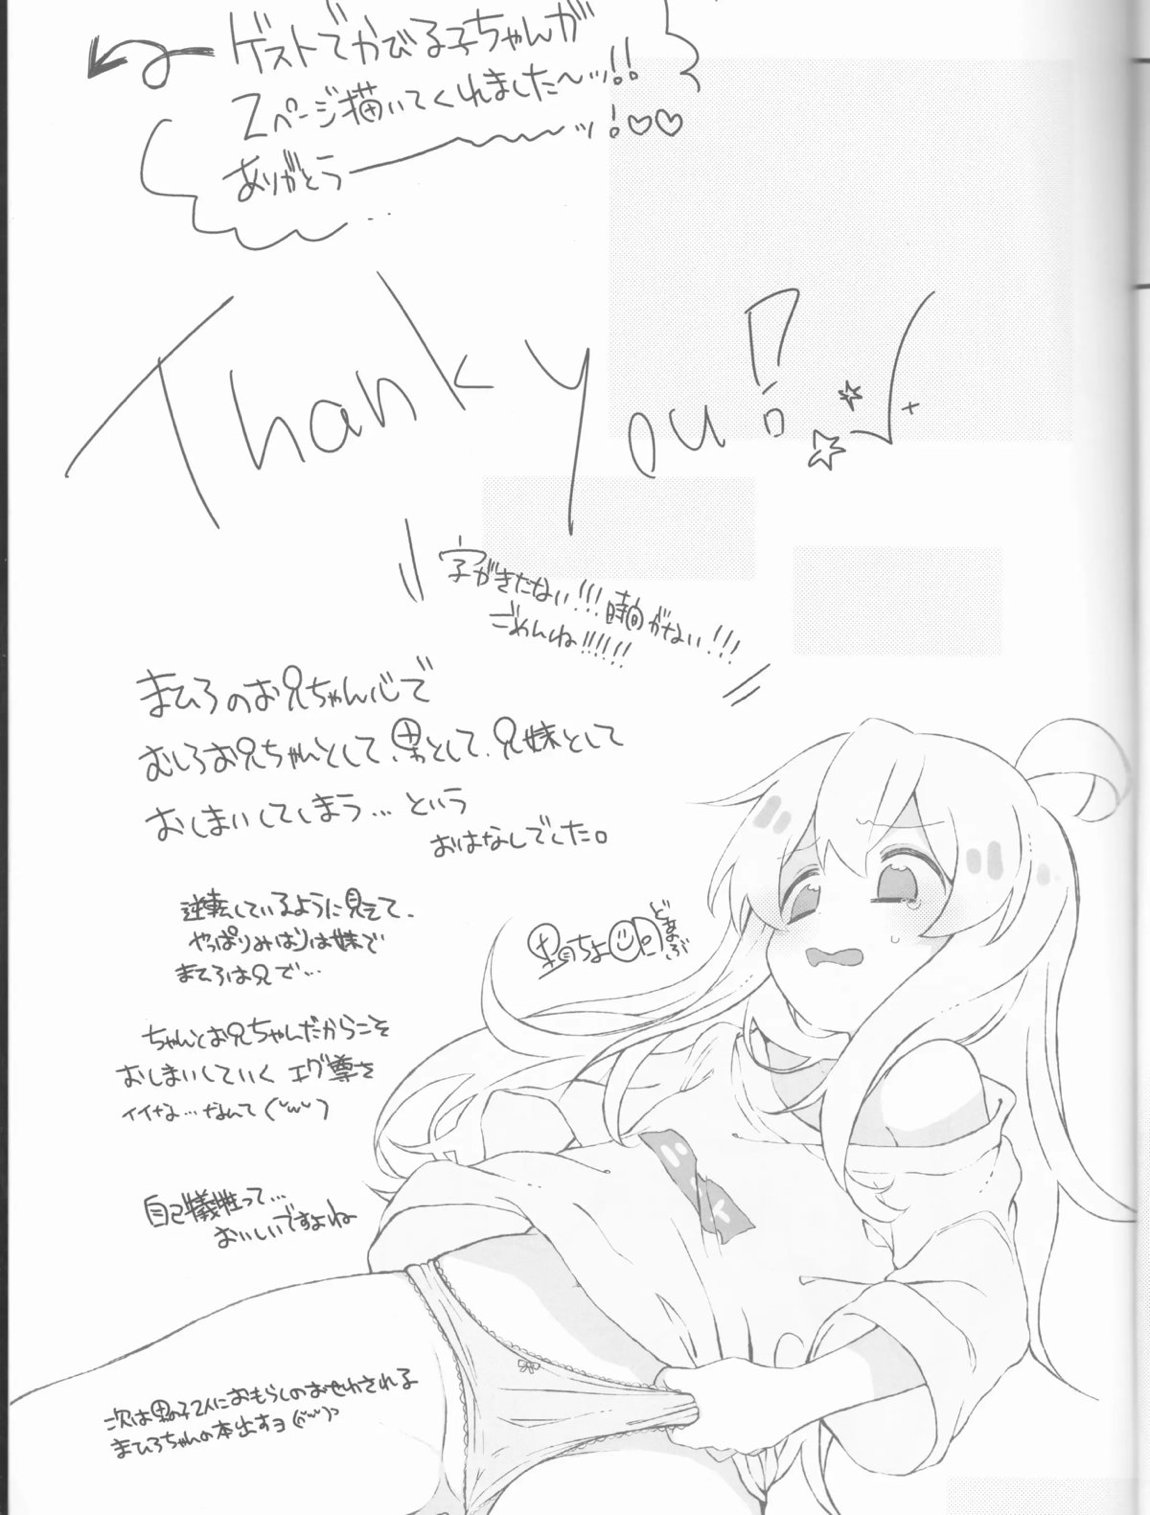 ゲストでかびる子ちゃんが
2ページ描いてくれました〜ッ!!
ありがとう―――〜〜ッ!♡♡
Thank you!
字がきたない!!!時間がない!!!
ごめんね!!!!!!
まひろのお兄ちゃん心で
むしろお兄ちゃんとして、男として、兄妹として
おしまいしてしまう…という
おはなしでした。
逆転しているように見えて、
やっぱりみはりは妹で
まひろは兄で…
ちゃんとお兄ちゃんだからこそ
おしまいしていく エグ尊さ
イイな…なんて(˘ω˘)
自己犠牲って…
おいしいですよね
次は男の子2人におもらしのおせわされる
まひろちゃんの本出すヨ(˘ω˘)